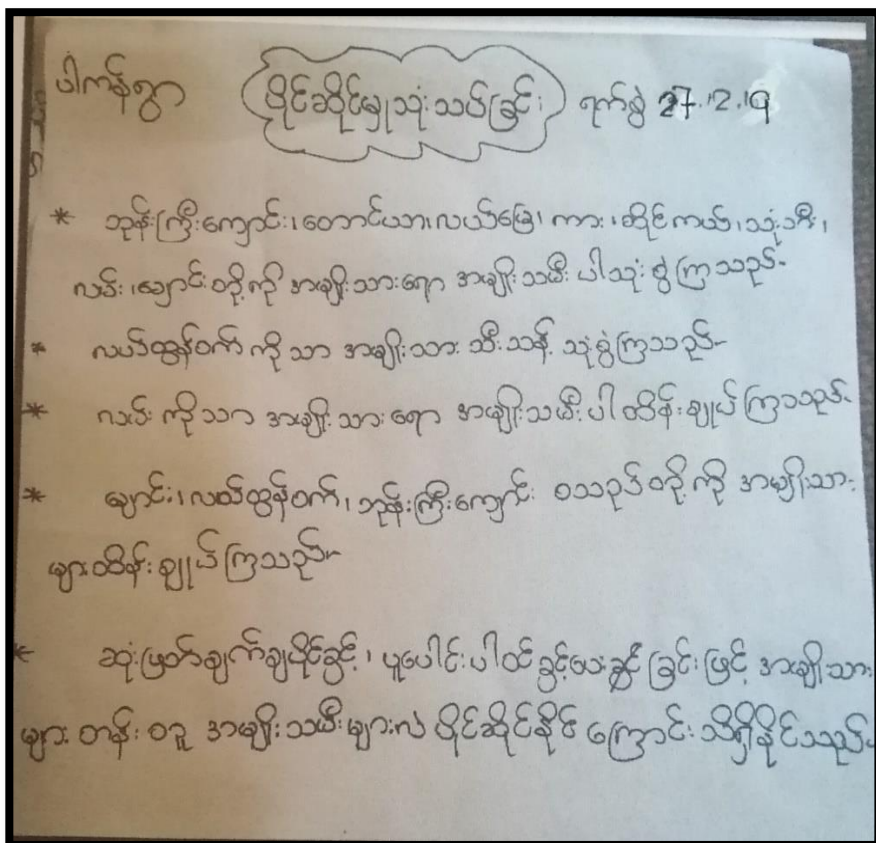 ပါကန်ရွာ ပိုင်ဆိုင်မှုသုံးသပ်ခြင်း ရက်စွဲ 27.12.19
* ဘုန်းကြီးကျောင်း၊ တောင်ယာ၊ လယ်မြေ၊ ကား၊ ဆိုင်ကယ်၊ သုံးဘီး၊
လမ်း၊ ချောင်း တို့ကို အမျိုးသားရော အမျိုးသမီးပါ သုံးစွဲကြသည်။
* လယ်ထွန်စက် ကိုသာ အမျိုးသား သီးသန့် သုံးစွဲကြသည်။
* လမ်း ကိုသာ အမျိုးသားရော အမျိုးသမီးပါ ထိန်းချုပ်ကြသည်။
* ချောင်း၊ လယ်ထွန်စက်၊ ဘုန်းကြီးကျောင်း စသည်တို့ကို အမျိုးသား
များထိန်းချုပ်ကြသည်။
* ဆုံးဖြတ်ချက်ချပိုင်ခွင့်၊ ပူပေါင်းပါဝင်ခွင့်ပေးခြင်းဖြင့် အမျိုးသား
များ တန်းတူ အမျိုးသမီးများလဲ ပိုင်ဆိုင်နိုင်ကြောင်း သိရှိနိုင်သည်။